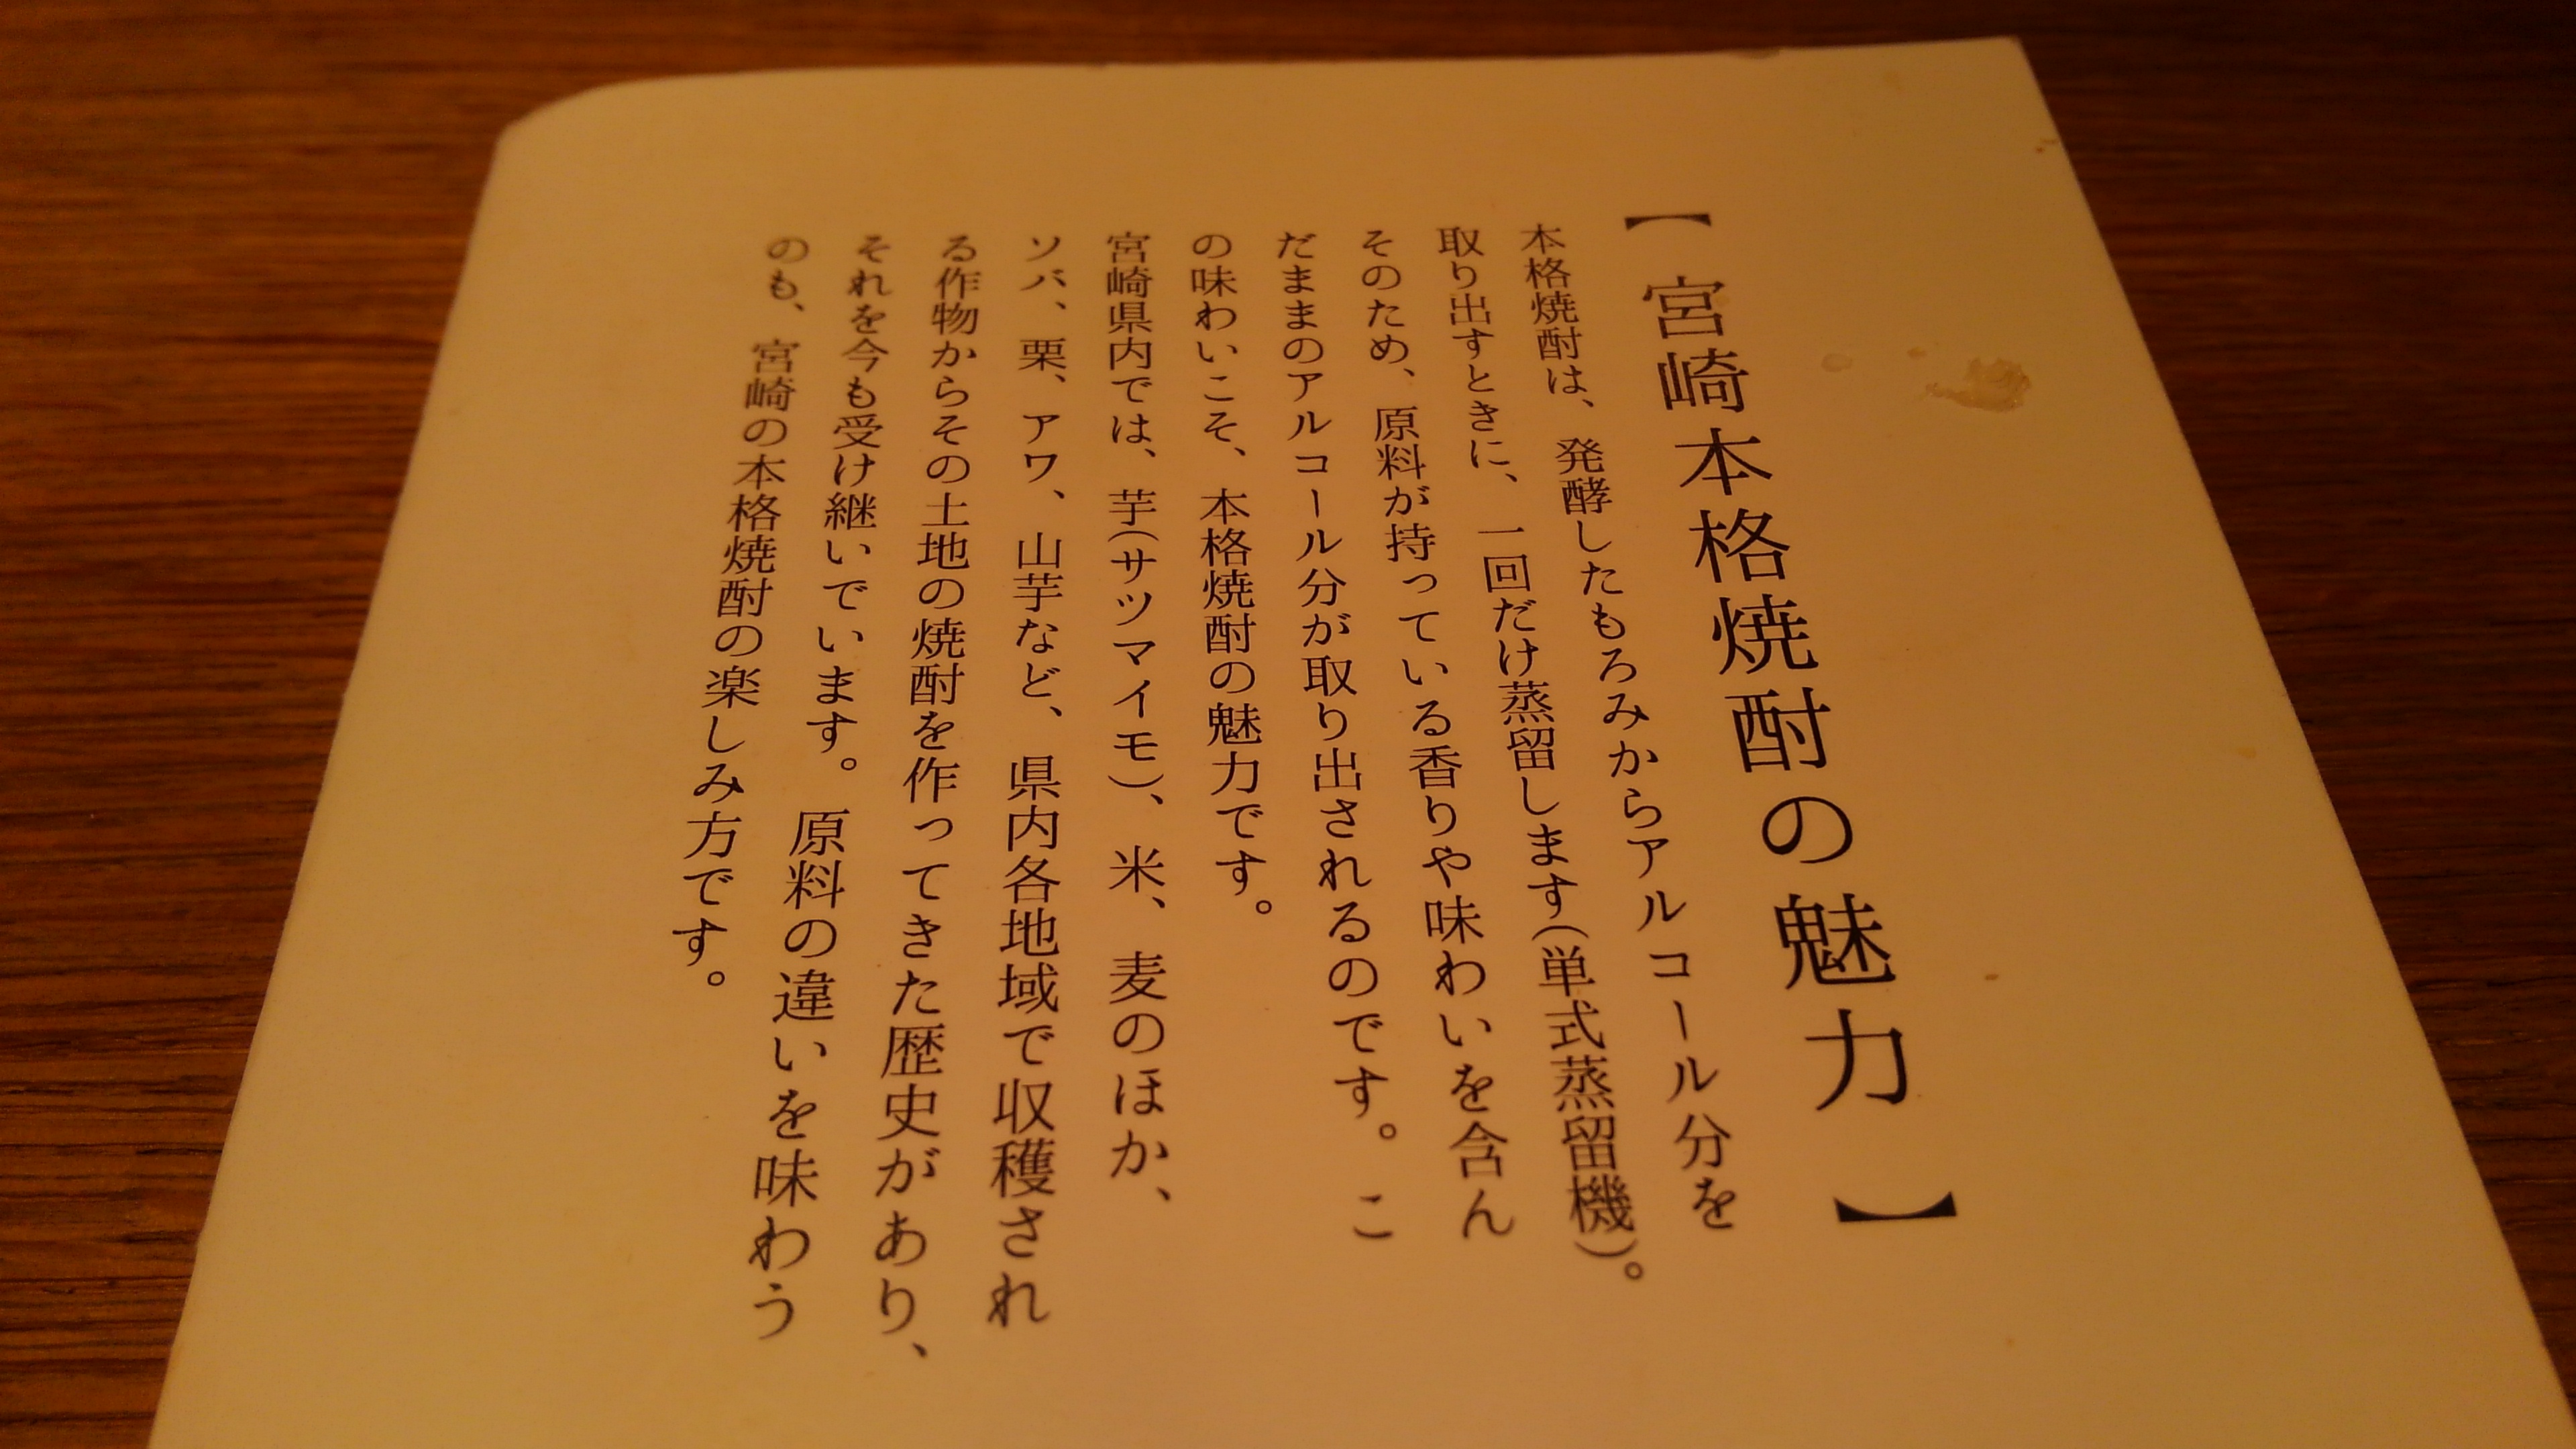 【宮崎本格焼酎の魅力】
本格焼酎は、発酵したもろみからアルコール分を
取り出すときに、一回だけ蒸留します(単式蒸留機)。
そのため、原料が持っている香りや味わいを含ん
だままのアルコール分が取り出されるのです。こ
の味わいこそ、本格焼酎の魅力です。
宮崎県内では、芋(サツマイモ)、米、麦のほか、
ソバ、栗、アワ、山芋など、県内各地域で収穫され
る作物からその土地の焼酎を作ってきた歴史があり、
それを今も受け継いでいます。原料の違いを味わう
のも、宮崎の本格焼酎の楽しみ方です。